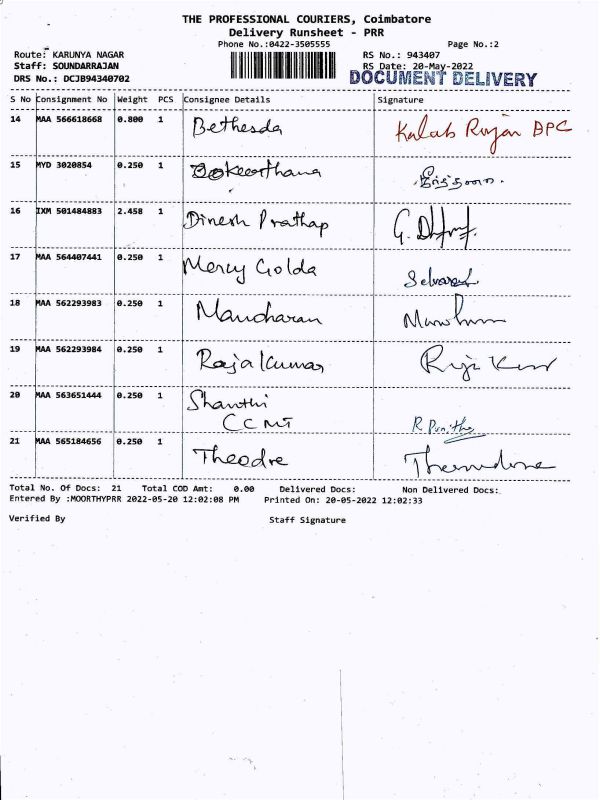 THE PROFESSIONAL COURIERS, Coimbatore
Delivery Runsheet - PRR
Phone No.:0422-3505555 Page No.:2
Route: KARUNYA NAGAR RS No.: 943407
Staff: SOUNDARRAJAN RS Date: 20-May-2022
DRS No.: DCJB94340702 DOCUMENT DELIVERY
S No Consignment No Weight PCS Consignee Details Signature
14 MAA 566618668 0.800 1 Bethesda Kalab Rajan BPC
15 MYD 3020854 0.250 1 கீர்த்தனை.
16 IXM 501484883 2.458 1 Dinesh Prathap
17 MAA 564407441 0.250 1 Mercy Golda
18 MAA 562293983 0.250 1 Manoharan
19 MAA 562293984 0.250 1 Raja Kumar
20 MAA 563651444 0.250 1 Shanthi
CCMT R Punitha
21 MAA 565184656 0.250 1 Theodre
Total No. Of Docs: 21 Total COD Amt: 0.00 Delivered Docs: Non Delivered Docs:
Entered By :MOORTHYPRR 2022-05-20 12:02:08 PM Printed On: 20-05-2022 12:02:33
Verified By Staff Signature